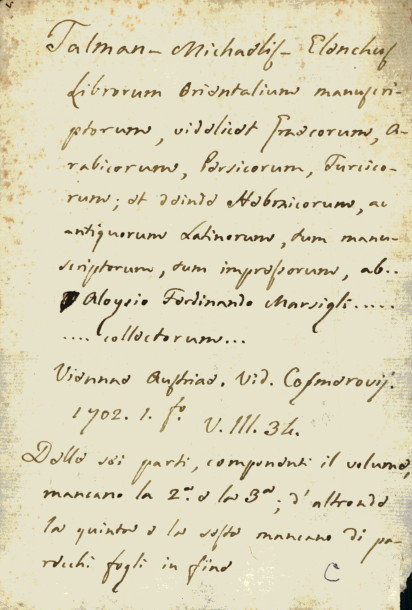 Talman- Michaelis- Elenchus
Librorum Orientalium manuscri-
ptorum, videlicet Graecorum, A-
rabicorum, Persicorum, Turcico-
rum; et deinde Hebraicorum, ac
antiquorum Latinorum, tum manu-
scriptorum, tum impressorum, ab..
Aloysio Ferdinando Marsigli.....
.... collectorum...
Viennae Austriae. Vid. Cosmerovij.
1702. 1. fo.
V. III. 34.
Delle sei parti, componenti il volume,
mancano la 2a. e la 3a; d'altronde
la quinta e la sesta mancano di pa-
recchi fogli in fine
C